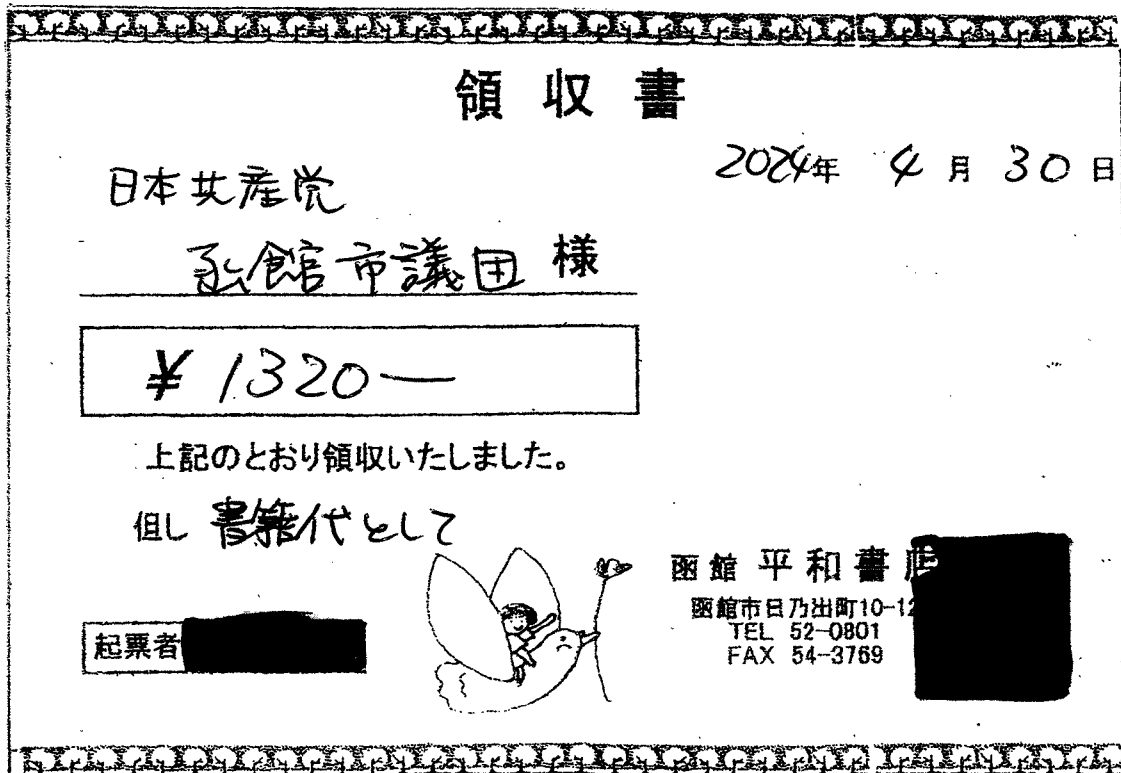 領収書
2024年 4月30日
日本共産党
函館市議団 様
¥1320―
上記のとおり領収いたしました。
但し 書籍代として
函館 平和書店
函館市日乃出町10-12
TEL 52-0801
FAX 54-3769
起票者